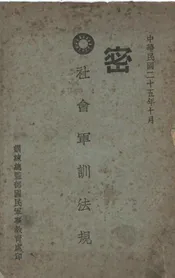 中華民國二十五年十月
密
社會軍訓法規
訓練總監部國民軍事教育處印